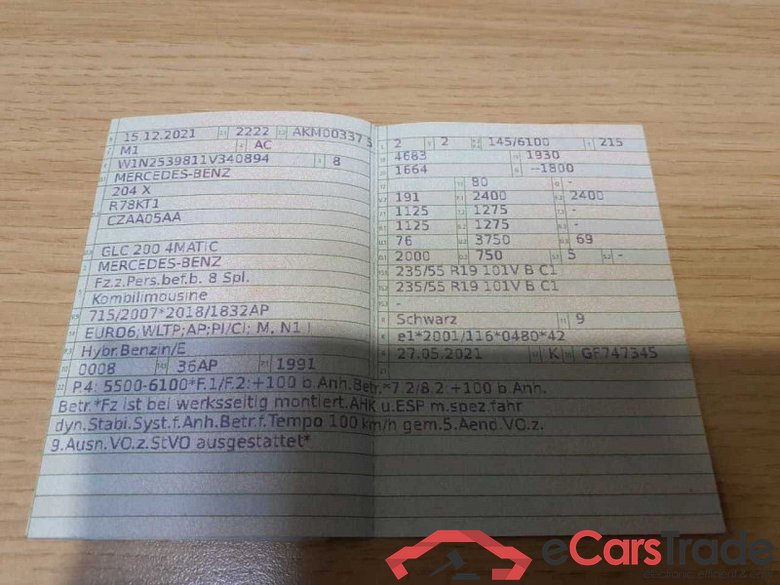 15.12.2021 2222 AKM00337 5
M1 AC
W1N2539811V340894 8
MERCEDES-BENZ
204 X
R78KT1
CZAA05AA
GLC 200 4MATIC
MERCEDES-BENZ
Fz.z.Pers.bef.b. 8 Spl.
Kombilimousine
715/2007*2018/1832AP
EURO6;WLTP;AP;PI/CI; M, N1 I
Hybr.Benzin/E
0008 36AP 1991
2 2 145/6100 215
4683 1930
1664 --1800
- 80 -
191 2400 2400
1125 1275 -
1125 1275 -
76 3750 69
2000 750 5 -
235/55 R19 101V B C1
235/55 R19 101V B C1
-
Schwarz 9
e1*2001/116*0480*42
27.05.2021 K GF747345
P.4: 5500-6100*F.1/F.2:+100 b.Anh.Betr.*7.2/8.2:+100 b Anh.
Betr.*Fz ist bei werksseitig montiert.AHK u.ESP m.spez.fahr
dyn.Stabi.Syst.f.Anh.Betr.f.Tempo 100 km/h gem.5.Aend.VO.z.
9.Ausn.VO.z.StVO ausgestattet*
eCarsTrade
electronic, efficient &